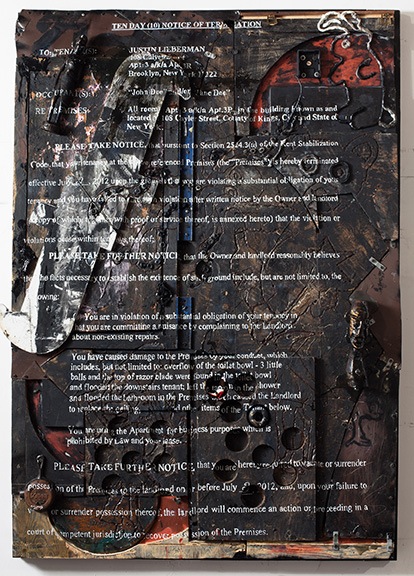 TEN DAY (10) NOTICE OF TERMINATION
TO: TENANT(S): JUSTIN LIEBERMAN
108 Cuyler
Apt. 3 a/k/a Apt 3R
Brooklyn, New York 11222
"John Doe" "Jane Doe"
PREMISES: All rooms, Apt. 3 a/k/a Apt. 3R, in the building known as and
located 108 Cuyler Street, County of Kings, City and State of
New York.
PLEASE TAKE NOTICE, that pursuant to Section 2524.3(a) of the Rent Stabilization
Code, that your tenancy at the referenced Premises (the "Premises") is hereby terminated
effective 2012 upon the grounds that you are violating a substantial obligation of your
tenancy and you have failed to violation after written notice by the Owner and landlord
(copy of which, together with proof of service thereof, is annexed hereto) that the violation or
violations cease within ten days thereof;
PLEASE TAKE FURTHER NOTICE, that the Owner and landlord reasonably believes
the facts necessary to establish the existence of such ground include, but are not limited to, the
following:
You are in violation of a substantial obligation of your tenancy in
that you are committing a nuisance by complaining to the Landlord
about non-existing repairs.
You have caused damage to the Premises by your conduct, which
includes, but not limited to: overflow of the toilet bowl - 3 little
balls and the top of razor blade were found in the toilet bowl
and flooded the downstairs tenant; left the shower
and flooded the bathroom in the Premises which caused the Landlord
to replace the ceiling and other items of the Tenant below.
You are using the Apartment for business purposes which is
prohibited by Law and your lease.
PLEASE TAKE FURTHER NOTICE, that you are hereby required to vacate or surrender
possession of the Premises to the landlord on or before July 2012, and, upon your failure to
or surrender possession thereof, the landlord will commence an action or proceeding in a
court of competent jurisdiction to recover possession of the Premises.